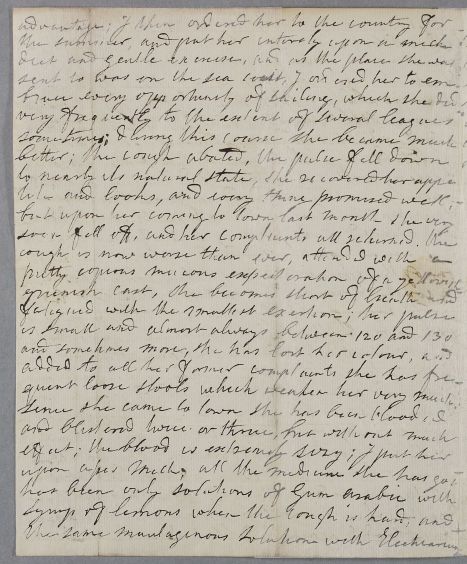 advantage; I then ordered her to the country for
the summer, and put her intirely upon a milk
diet and gentle exercise, and as the place she was
sent to was on the sea coast, I ordered her to em
brace every opportunity of sailing, which she did
very frequently to the extent of several leagues
sometimes; during this course she became much
better; the cough abated, the pulse fell down
to nearly its natural state, she recovered her appe
tite and looks, and every thing promised well;
but upon her coming to town last month she very
soon fell off, and her complaints all returned, the
cough is now worse than ever, attended with a
pretty copious mucous expectoration of a yellowish
greenish cast, she becomes short of breath and
fatigued with the smallest exertion; her pulse
is small and almost always between 120 and 130
and sometimes more, she has lost her colour, and
added to all her former complaints she has fre
quent loose stools which weaken her very much;
since she came to town she has been blooded
and blistered twice or thrice, but without much
effect; the blood is extremely sizy; I put her
upon asses milk; all the medicine she has got
has been only solutions of Gum arabic with
Syrup of lemons when the cough is hard, and
the same mucilaginous solution with Electuarium